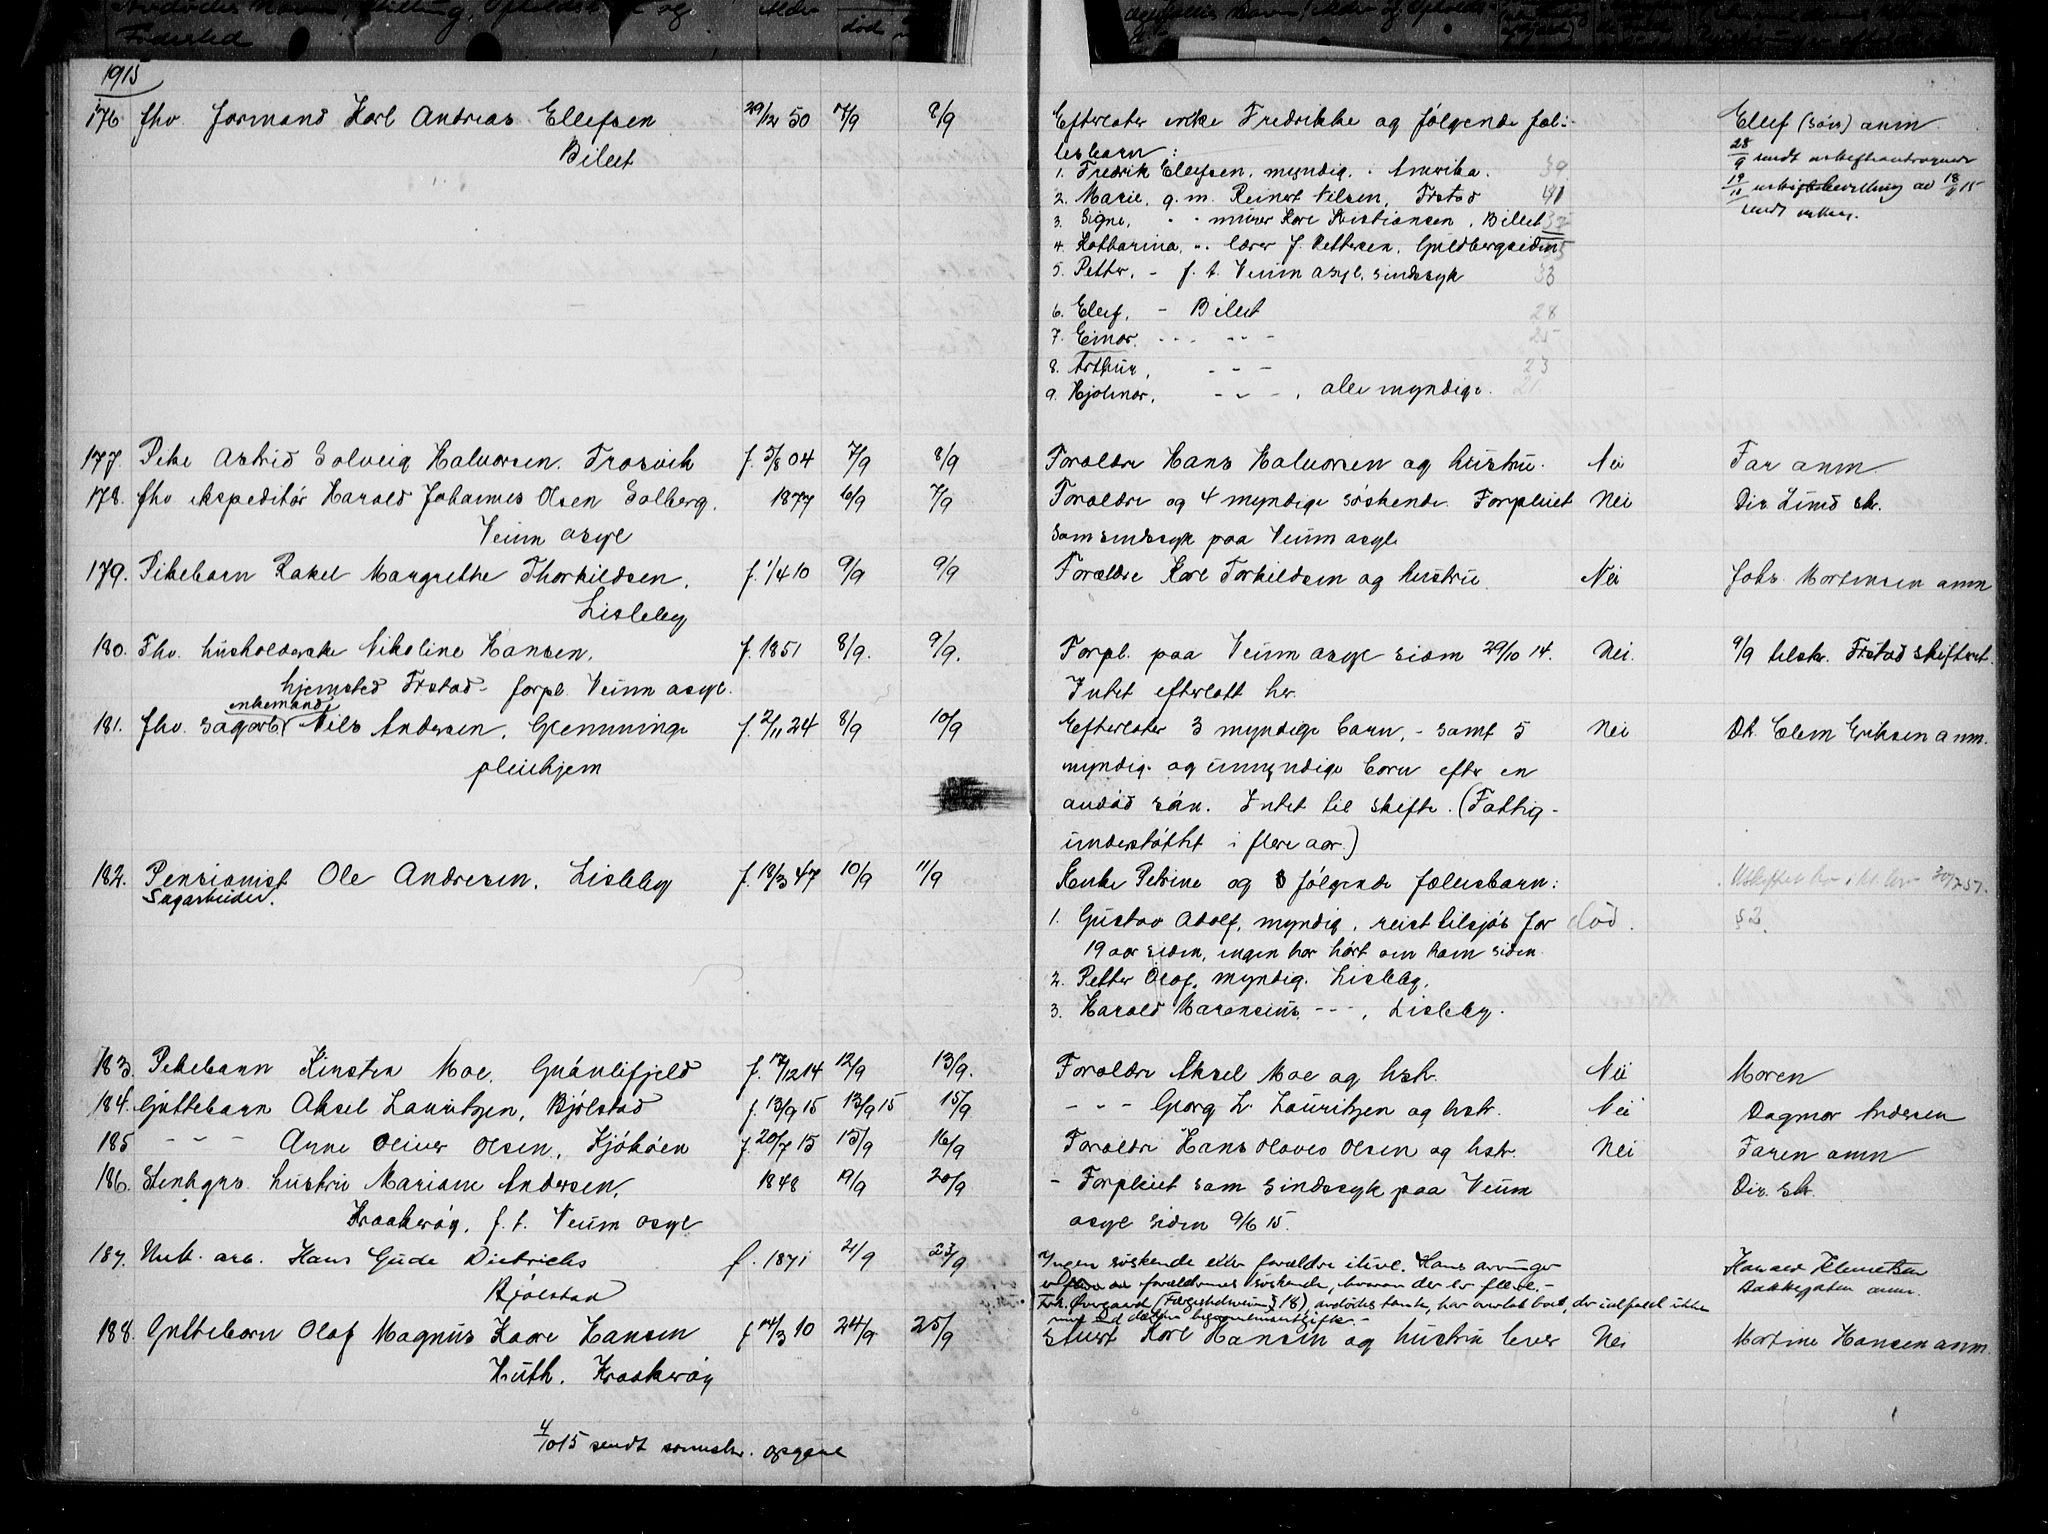 Avdødes Navn, Stilling, Opholdssted og
Fødested
død
1915
176. fhv. formand Karl Andreas Ellefsen 29/12 50 7/9 8/9
Bileet
177. Pike Astrid Solveig Halvorsen. Trosvik f. 5/8 04 7/9 8/9
178. fhv ekspeditør Harald Johannes Olsen Solberg. 1877 6/9 7/9
Veum asyl
179. Pikebarn Rakel Margrethe Thorkildsen, f. 1/4 10 9/9 9/9
Lisleby
180. Fhv. husholderske Nikoline Hansen, f. 1851 8/9. 9/9.
hjemsted Frstad - forpl. Veum asyl.
enkemand
181. fhv. sagarb. Nils Andersen, Glemminge f. 2/11 24 8/9 10/9
pleiehjem
182. Pensionist Ole Andresen, Lisleby f. 18/3 47 10/9 11/9
Sagarbeider.
183. Pikebarn Kirsten Moe, Grånlifjeld f. 17/12 14 12/9 13/9.
184. Guttebarn Aksel Lauritzen, Bjølstad f. 13/9 15 13/9 15 15/9
185 - - - Arne Oliver Olsen, Kjøkøen f. 20/7 15 15/9 16/9
186. Stenhgrs. hustru Mariane Andersen, 1848 19/9 20/9
Kraakerøy, f. t. Veum asyl
187. Murk. arb. Hans Gude Dietrichs f. 1871 21/9 23/9
Bjølstad
188. Guttebarn Olaf Magnus Kaare Hansen f 14/3 10 24/9 25/9
Huth. Kraakerøy
4/10 15 sendt opgave
Efterlater enke Fredrikke og følgende fæl-
lesbarn:
1. Fredrik Ellefsen, myndig. i Amerika. 39
2. Marie, g. m. Reinert Nilsen, Frstad 41
3. Signe, - - murer Kare Kristiansen, Bileet
4. Katharina, -. lærer J. Pettersen, Guldbergseiden
5. Petter, - f. t. Veum asyl, sindssyk 33
6. Elef, - Bileet 28
7. Einar. - - - - - - 25
8. Arthur, - - - 23
9. Hjalmar, - - - , alle myndige. 21
Forældre Hans Halvorsen og hustru. Nei
Forældre og 4 myndige søskende. Forpleiet Nei
som sindssyk paa Veum asyl
Forældre Karl Torkildsen og hustru. Nei
Forpl. paa Veum asyl siden 29/10 14. Nei.
Intet efterlatt her.
Efterlater 3 myndige barn, - samt 5 Nei
myndige og umyndige barn efter en
avdød søn. Intet til skifte. (Fattig-
understøttet i flere aar.)
Enke Petrine og 3 følgende fællesbarn:
1. Gustav Adolf, myndig, reist tilsjøs for død.
19 aar siden, ingen har hørt om ham siden.
2. Petter Olaf, myndig. Lisleby,
3. Harald Marensius, - - - , Lisleby.
Forældre Aksel Moe og hstr. Nei
- - - Georg L. Lauritzen og hstr. Nei
Forældre Hans Olaves Olsen og hstr. Nei
- Forpleiet som sindssyk paa Veum
asyl siden 9/6 15.
Ingen søskende eller forældre ilive. Hans arvinger
forældrenes søskende, hvorav der er flere. -
Frk. Øvergaard (Færgestedsveien 18), avdødes tante, har overtat boet, der ialfald ikke
Karl Hansen og hustru lever Nei
Elef (søn) anm.
28/9 sendt
19/10 av 18/ 15
sendt enken.
Far anm
Dir. Lund skr.
Johs. Mortensen anm
9/9 tilskr. Frstad skifteret.
Dk. Elem Eriksen anm.
§2.
Moren
Dagmar Andersen
Faren anm
Dir. skr.
Harald Klemetsen
Bakkegaten anm.
Martine Hansen anm.